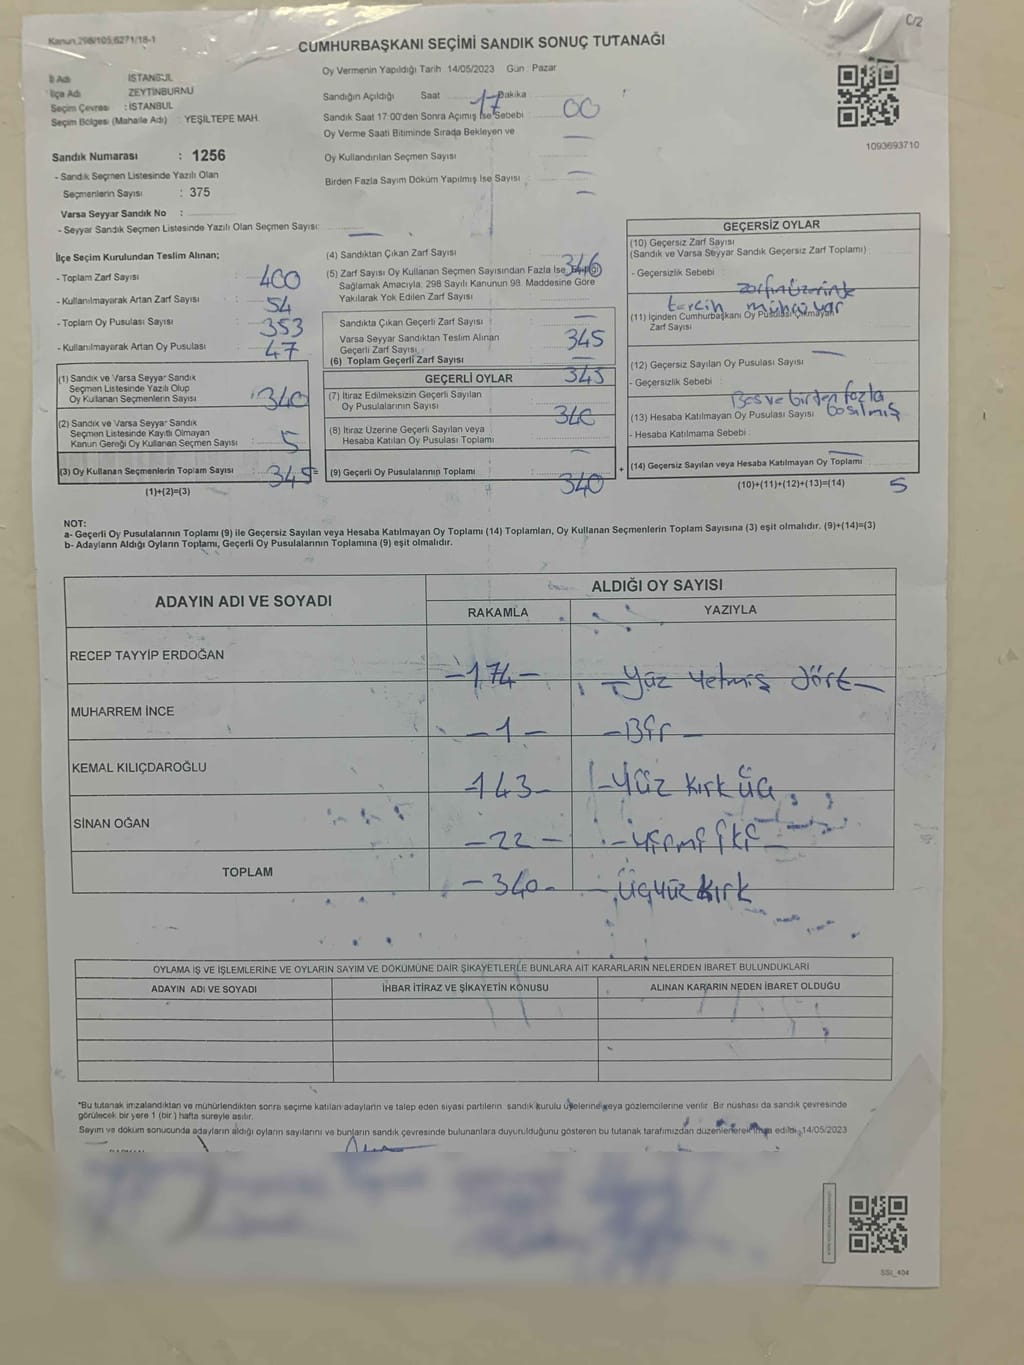 C/2
Kanun 298/105,6271/18-1
CUMHURBAŞKANI SEÇİMİ SANDIK SONUÇ TUTANAĞI
İl Adı İSTANBUL
İlçe Adı ZEYTİNBURNU
Seçim Çevresi : İSTANBUL
Seçim Bölgesi (Mahalle Adı) : YEŞİLTEPE MAH.
Oy Vermenin Yapıldığı Tarih 14/05/2023 Gün : Pazar
Sandığın Açıldığı Saat 17 Dakika 00
Sandık Saat 17:00'den Sonra Açımış İse Sebebi
Oy Verme Saati Bitiminde Sırada Bekleyen ve
Oy Kullandırılan Seçmen Sayısı
Birden Fazla Sayım Döküm Yapılmış İse Sayısı
1093693710
Sandık Numarası : 1256
- Sandık Seçmen Listesinde Yazılı Olan
Seçmenlerin Sayısı : 375
Varsa Seyyar Sandık No :
- Seyyar Sandık Seçmen Listesinde Yazılı Olan Seçmen Sayısı:
İlçe Seçim Kurulundan Teslim Alınan;
- Toplam Zarf Sayısı : 400
- Kullanılmayarak Artan Zarf Sayısı : 54
- Toplam Oy Pusulası Sayısı : 353
- Kullanılmayarak Artan Oy Pusulası : 47
(1) Sandık ve Varsa Seyyar Sandık
Seçmen Listesinde Yazılı Olup
Oy Kullanan Seçmenlerin Sayısı : 340
(2) Sandık ve Varsa Seyyar Sandık
Seçmen Listesinde Kayıtlı Olmayan
Kanun Gereği Oy Kullanan Seçmen Sayısı : 5
(3) Oy Kullanan Seçmenlerin Toplam Sayısı : 345 =
(1)+(2)=(3)
(4) Sandıktan Çıkan Zarf Sayısı 346
(5) Zarf Sayısı Oy Kullanan Seçmen Sayısından Fazla İse
Sağlamak Amacıyla, 298 Sayılı Kanunun 98. Maddesine Göre
Yakılarak Yok Edilen Zarf Sayısı
Sandıkta Çıkan Geçerli Zarf Sayısı : 345
Varsa Seyyar Sandıktan Teslim Alınan
Geçerli Zarf Sayısı :
(6) Toplam Geçerli Zarf Sayısı 345
GEÇERLİ OYLAR
(7) İtiraz Edilmeksizin Geçerli Sayılan
Oy Pusulalarının Sayısı 340
(8) İtiraz Üzerine Geçerli Sayılan veya
Hesaba Katılan Oy Pusulası Toplamı
(9) Geçerli Oy Pusulalarının Toplamı : 340 +
GEÇERSİZ OYLAR
(10) Geçersiz Zarf Sayısı
(Sandık ve Varsa Seyyar Sandık Geçersiz Zarf Toplamı)
- Geçersizlik Sebebi : zarfın üzerinde
tercih mührü var
(11) İçinden Cumhurbaşkanı Oy Pusulası Çıkmayan
Zarf Sayısı
(12) Geçersiz Sayılan Oy Pusulası Sayısı
- Geçersizlik Sebebi : Boş ve birden fazla
basılmış
(13) Hesaba Katılmayan Oy Pusulası Sayısı
- Hesaba Katılmama Sebebi :
(14) Geçersiz Sayılan veya Hesaba Katılmayan Oy Toplamı
(10)+(11)+(12)+(13)=(14) 5
NOT:
a- Geçerli Oy Pusulalarının Toplamı (9) ile Geçersiz Sayılan veya Hesaba Katılmayan Oy Toplamı (14) Toplamları, Oy Kullanan Seçmenlerin Toplam Sayısına (3) eşit olmalıdır. (9)+(14)=(3)
b- Adayların Aldığı Oyların Toplamı, Geçerli Oy Pusulalarının Toplamına (9) eşit olmalıdır.
ADAYIN ADI VE SOYADI ALDIĞI OY SAYISI
RAKAMLA YAZIYLA
RECEP TAYYİP ERDOĞAN - 174 - - Yüz Yetmiş dört -
MUHARREM İNCE - 1 - - Bir -
KEMAL KILIÇDAROĞLU - 143 - - Yüz Kırk üç
SİNAN OĞAN - 22 - - Yirmi iki -
TOPLAM - 340 - - üçyüz kırk
OYLAMA İŞ VE İŞLEMLERİNE VE OYLARIN SAYIM VE DÖKÜMÜNE DAİR ŞİKAYETLERLE BUNLARA AİT KARARLARIN NELERDEN İBARET BULUNDUKLARI
ADAYIN ADI VE SOYADI İHBAR İTİRAZ VE ŞİKAYETİN KONUSU ALINAN KARARIN NEDEN İBARET OLDUĞU
*Bu tutanak imzalandıktan ve mühürlendikten sonra seçime katılan adayların ve talep eden siyasi partilerin sandık kurulu üyelerine veya gözlemcilerine verilir. Bir nüshası da sandık çevresinde
görülecek bir yere 1 (bir) hafta süreyle asılır.
Sayım ve döküm sonucunda adayların aldığı oyların sayılarını ve bunların sandık çevresinde bulunanlara duyurulduğunu gösteren bu tutanak tarafımızdan düzenlenerek imza edildi. 14/05/2023
SSI_404